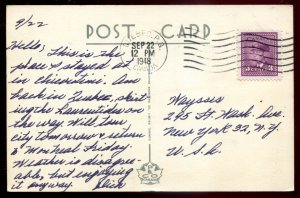 9/22
POST CARD
SEP 22
12 PM
1948
Hello, This is the
place I stayed at
in Chicoutimi. Am
back in Quebec, skirt-
ing the Laurentides on
the way. Will tour
city tomorrow & return
to Montreal Friday.
Weather is disagree-
able, but enjoying
it anyway.
Wayssis
245 St. Wash. Ave.
New York 32, N.Y.
U.S.A.